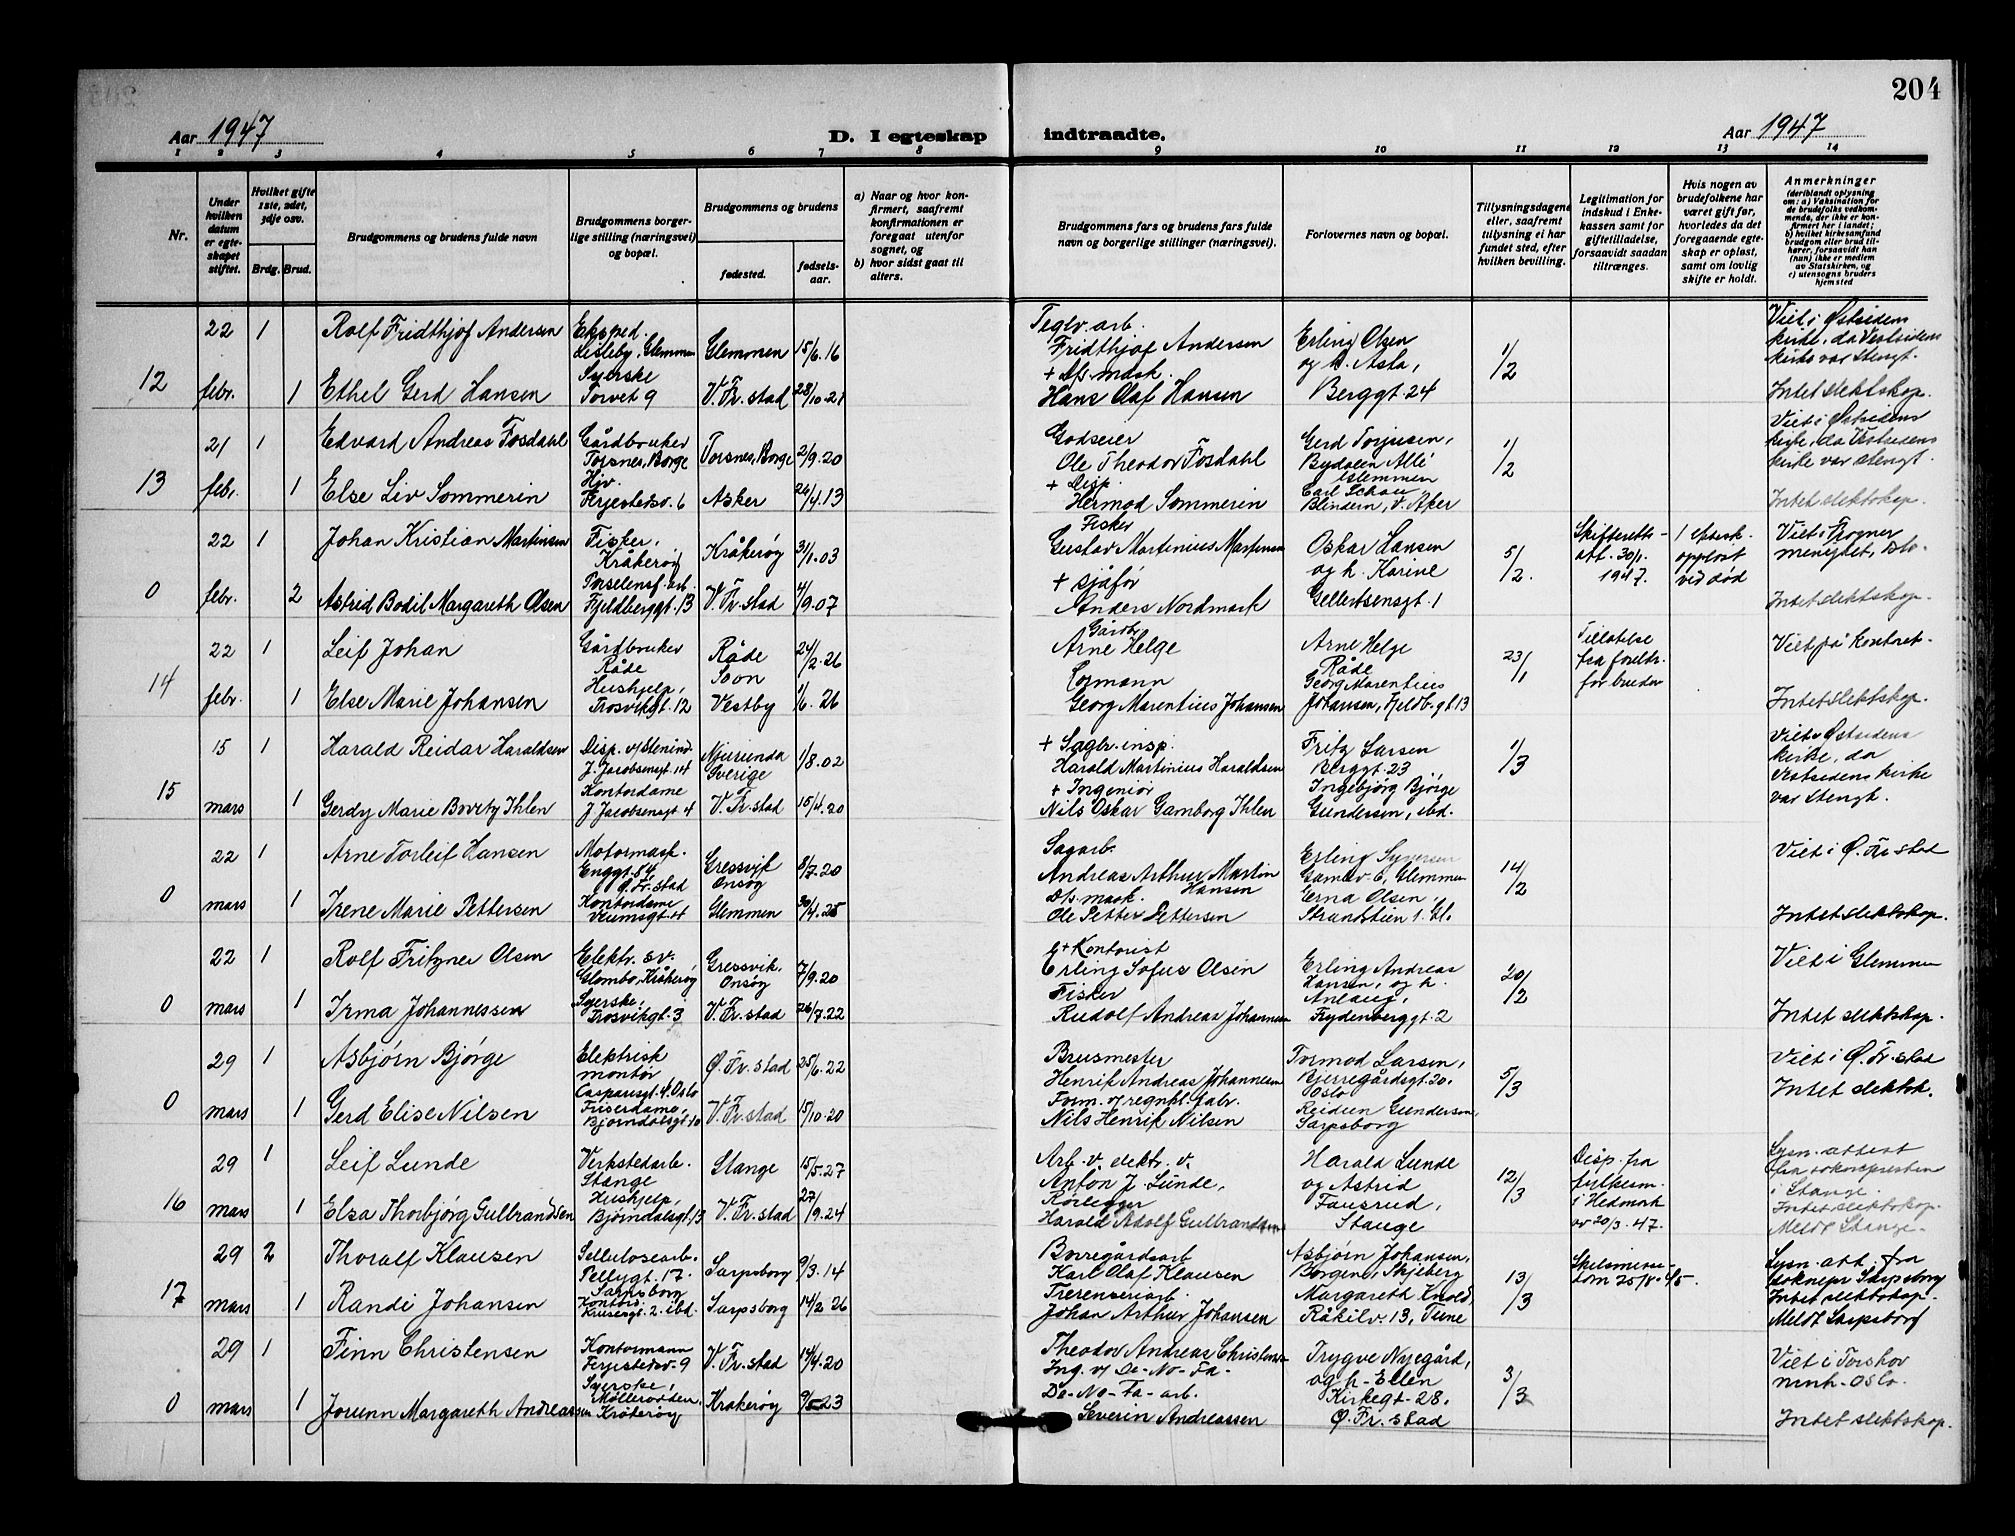 204
Aar 1947
D. I egteskap
indtraadte.
Aar 1947
1 2 3 4 5 6 7 8
9 10 11 12 13 14
Nr.
Under hvilken datum er egteskapet stiftet.
Hvilket gifte 1ste, 2det, 3dje osv.
Brdg. Brud.
Brudgommens og brudens fulde navn
Brudgommens borgerlige stilling (næringsvei) og bopæl.
Brudgommens og brudens
fødested.
fødselsaar.
a) Naar og hvor konfirmert, saafremt konfirmationen er foregaat utenfor sognet, og
b) hvor sidst gaat til alters.
Brudgommens fars og brudens fars fulde navn og borgerlige stillinger (næringsvei).
Forlovernes navn og bopæl.
Tillysningsdagene eller, saafremt tillysning ei har fundet sted, efter hvilken bevilling.
Legitimation for indskud i Enkekassen samt for giftetilladelse, forsaavidt saadan tiltrænges.
Hvis nogen av brudefolkene har været gift før, hvorledes da det foregaaende egteskap er opløst, samt om lovlig skifte er holdt.
Anmerkninger
(deriblandt oplysning om: a) Vaksination for de brudefolks vedkommende, der ikke er konfirmert her i landet; b) hvilket kirkesamfund brudgom eller brud tilhører, forsaavidt han (hun) ikke er medlem av Statskirken, og c) utensogns bruders hjemsted
12
22 1 Rolf Fridthjof Andersen
Eksped. Lisleby, Glemmen
Glemmen 15/6.16
febr. 1 Ethel Gerd Hansen
Syerske Torvet 9
V. Fr. stad 28/10.21
Teglv. arb.
Fridthjof Andersen
+ Ds. mask.
Hans Olaf Hansen
Erling Olsen
og h. Asta,
Berggt. 24
1/2
Viet i Østsidens
kirke, da Vestsidens
kirke var stengt.
Intet slektskap.
13
21 1 Edvard Andreas Fosdahl
Gårdbruker Torsnes, Borge
Torsnes, Borge 2/9.20
febr. 1 Else Liv Sommerin
Hjv. Ferjestedsv. 6
Asker 26/4.13
Godseier
Ole Theodor Fosdahl
+ Disp.
Hermod Sommerin
Gerd Torjusen,
Bydalen Allé
Glemmen
Carl Schou
Blindern, V. Aker
1/2
Viet i Østsidens
kirke, da Vestsidens
kirke var stengt.
Intet slektskap.
0
22 1 Johan Kristian Martinsen
Fisker, Kråkerøy
Kråkerøy 31/1.03
febr. 2 Astrid Bodil Margareth Olsen
Porselensf. arb. Fjeldberggt. 13
V. Fr. stad 4/9.07
Fisker
Gustav Martinius Martinsen
+ sjåfør
Anders Nordmark
Oskar Hansen
og h. Karine
Gellertsensgt. 1
5/2.
Skifteretts-
att. 30/1.
1947.
1 ektesk.
oppløst
ved død
Viet i Frogner
menighet, Oslo.
Intet slektskap.
14
22 1 Leif Johan
Gårdbruker Råde
Råde 24/2.26
febr. 1 Else Marie Johansen
Hushjelp, Trosvikgt. 12
Soon Vestby 1/6.26
Gårdbr.
Arne Helge
Formann
Georg Marentius Johansen
Arne Helge
Råde
Georg Marentius
Johansen, Fjeldb.gt. 13
23/1
Tillatelse
fra foreldr.
for bruden
Viet på kontoret.
Intet slektskap.
15
15 1 Harald Reidar Haraldsen
J. Jacobsensgt. 14
Njurunda Sverige 1/8.02
mars 1 Gerdy Marie Bovitz Ihlen
Kontordame J. Jacobsensgt. 4
V. Fr. stad 15/4.20
+ Sagbr. insp.
Harald Martinius Haraldsen
+ Ingeniør
Nils Oskar Gamborg Ihlen
Fritz Larsen
Berggt. 23
Ingebjørg Bjørge
Gundersen, ibd.
1/3
Viet i Østsidens
kirke, da
Vestsidens kirke
var stengt.
0
22 1 Arne Torleif Hansen
Motormask. Enggt. 84, Ø. Fr. stad
Gressvik Onsøy 8/7.20
mars 1 Irene Marie Pettersen
Kontordame Veumsgt. 44
Glemmen 30/4.25
Sagarb.
Andreas Arthur Martin
Hansen
Ds. mask.
Ole Petter Pettersen
Erling Syversen
Gamlev. 6, Glemmen
Erna Olsen,
Strandstien 1. Gl.
14/2
Viet i Ø. Fr. stad
Intet slektskap.
0
22 1 Rolf Fritzner Olsen
Elektr. sv. Glombo, Kråkerøy
Gressvik. Onsøy 7/9.20
mars 1 Irma Johannessen
Syerske, Trosvikgt. 3
V. Fr. stad 26/7.22
+ Kontorist
Erling Sofus Olsen
Fisker
Rudolf Andreas Johannessen
Erling Andreas
Hansen, og h.
Anlaug,
Frydenberggt. 2
20/2
Viet i Glemmen
Intet slektskap.
0
29 1 Asbjørn Bjørge
Elektrisk montør Casparisgt. 4. Oslo
Ø. Fr. stad 25/6.22
mars 1 Gerd Elise Nilsen
Friserdame, Bjørndalsgt. 10
V. Fr. stad 15/10.20
Brusmester
Henrik Andreas Johannesen
Form. og regnkl. fabr.
Nils Henrik Nilsen
Tormod Larsen,
Bjerregårdsgt. 20.
Oslo
Reidun Gundersen,
Sarpsborg
5/3
Viet i Ø. Fr. stad
Intet slektsk.
16
29 1 Leif Lunde
Verkstedarb. Stange
Stange 15/5.27
mars 1 Elsa Thorbjørg Gulbrandsen
Hushjelp, Bjørndalsgt. 13
V. Fr. stad 27/9.24
Arb. v. elektr. v.
Anton J. Lunde,
Rørlegger
Harald Adolf Gulbrandsen
Harald Lunde
og Astrid
Fausrud,
Stange
12/3
Disp. fra
fylkesm.
i Hedmark
av 20/3.47.
Lysn. attest
fra soknepresten
i Stange.
Intet slektskap.
Meldt Stange.
17
29 2 Thoralf Klausen
Cellulosearb. Pellygt. 17. Sarpsborg
Sarpsborg 9/3.14
mars 1 Randi Johansen
Kontord. Krusesgt. 2. ibd.
Sarpsborg 14/2.26
Borregårdsarb
Karl Olaf Klausen
Johan Arthur Johansen
Asbjørn Johansen,
Borgen, Skjeberg
Margareth Knold,
Råkilv. 13, Tune
13/3
Skilsmisse-
dom 25/8.45.
Lysn. att. fra
soknepr Sarpsborg
Intet slektskap.
Meldt Sarpsborg
0
29 1 Finn Christensen
Kontormann Ferjestedsv. 9
V. Fr. stad 14/4.20
mars 1 Jorunn Margareth Andreassen
Syerske, Mølleroden, Kråkerøy
Kråkerøy 9/5 23
Theodor Andreas Christensen
Ing. v/ De-No-Fa-
De-No-Fa-arb.
Severin Andreassen
Trygve Nyegård,
og h. Ellen
Kirkegt. 28.
Ø. Fr. stad
3/3
Viet i Torshov
menh. Oslo.
Intet slektskap.